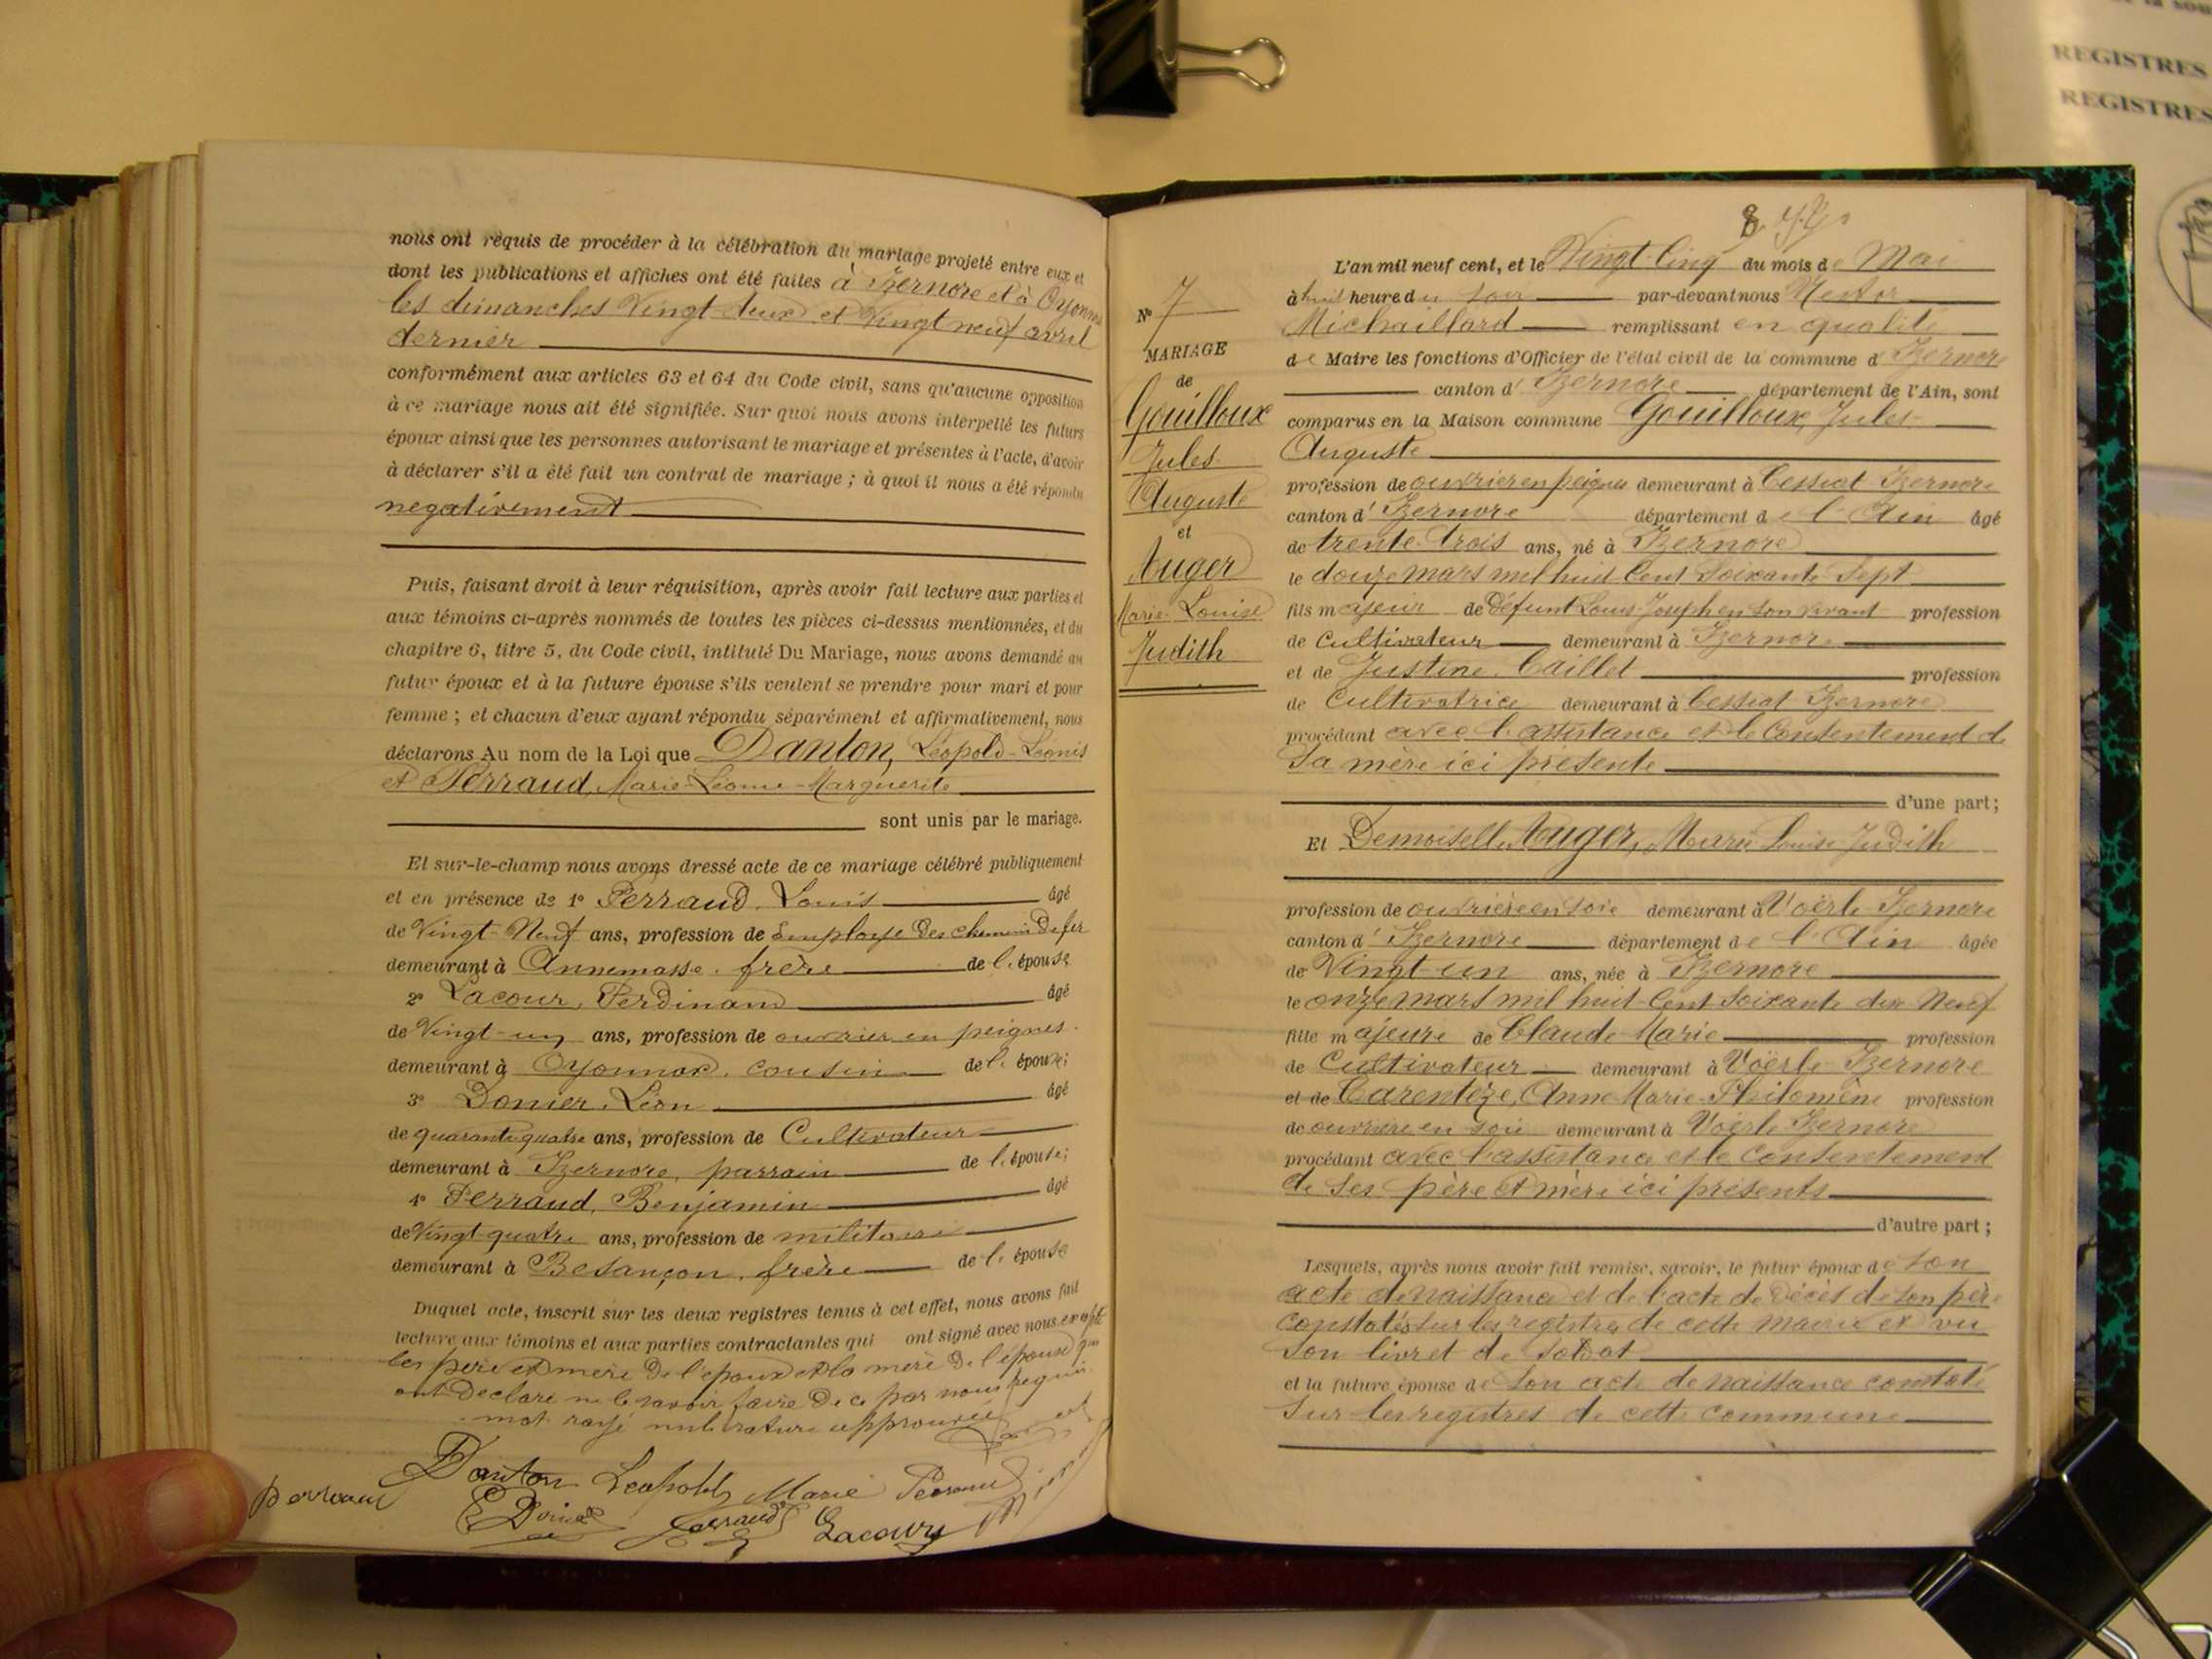 nous ont requis de procéder à la célébration du mariage projeté entre eux et
dont les publications et affiches ont été faites à Izernore et à Oyonnax
les dimanches Vingt deux et Vingt neuf avril
dernier
conformément aux articles 63 et 64 du Code civil, sans qu'aucune opposition
à ce mariage nous ait été signifiée. Sur quoi nous avons interpellé les futurs
époux ainsi que les personnes autorisant le mariage et présentes à l'acte, d'avoir
à déclarer s'il a été fait un contrat de mariage ; à quoi il nous a été répondu
negativement
Puis, faisant droit à leur réquisition, après avoir fait lecture aux parties et
aux témoins ci-après nommés de toutes les pièces ci-dessus mentionnées, et du
chapitre 6, titre 5, du Code civil, intitulé Du Mariage, nous avons demandé au
futur époux et à la future épouse s'ils veulent se prendre pour mari et pour
femme ; et chacun d'eux ayant répondu séparément et affirmativement, nous
déclarons Au nom de la Loi que Danton, Léopold-Léonis
et Perraud, Marie-Léonie-Marguerite
sont unis par le mariage.
Et sur-le-champ nous avons dressé acte de ce mariage célébré publiquement
et en présence de 1° Perraud Louis âgé
de Vingt-Neuf ans, profession de Employé des chemin de fer
demeurant à Annemasse. frère de l. épouse
2° Lacour, Ferdinand âgé
de Vingt-un ans, profession de ouvrier en peignes
demeurant à Oyonnax, cousin de l. épouse;
3° Donier, Léon âgé
de quarante quatre ans, profession de Cultivateur
demeurant à Izernore, parrain de l. épouse;
4° Perraud, Benjamin âgé
de Vingt-quatre ans, profession de militaire
demeurant à Besançon, frère de l. épouse
Duquel acte, inscrit sur les deux registres tenus à cet effet, nous avons fait
lecture aux témoins et aux parties contractantes qui ont signé avec nous excepté
les père et mère de l'époux et la mère de l'épouse qui
ont déclaré ne le savoir faire de ce par nous requis
mot rayé nul rature approuvée
Danton Leopold Marie Perraud
Perraud
Donier Perraud Lacour
8
N° 7
MARIAGE
de
Gouilloux
Jules
Auguste
et
Auger
Marie Louise
Judith
L'an mil neuf cent, et le Vingt-Cinq du mois de Mai
à huit heure du soir par-devant nous Nestor
Michaillard remplissant en qualité
de Maire les fonctions d'Officier de l'état civil de la commune d' Izernore
canton d' Izernore département de l'Ain, sont
comparus en la Maison commune Gouilloux, Jules
Auguste
profession de ouvrier en peignes demeurant à Cessiat Izernore
canton d' Izernore département de l'Ain âgé
de trente-trois ans, né à Izernore
le douze mars mil huit Cent Soixante Sept
fils majeur de Défunt Louis-Joseph en son vivant profession
de Cultivateur demeurant à Izernore
et de Justine Caillet profession
de Cultivatrice demeurant à Cessiat Izernore
procédant avec l'assistance et le Consentement de
Sa mère ici présente
d'une part;
Et Demoiselle Auger, Marie Louise Judith
profession de ouvrière en soie demeurant à Voërle Izernore
canton d' Izernore département de l'Ain âgée
de Vingt un ans, née à Izernore
le onze mars mil huit-Cent Soixante dix Neuf
fille majeure de Claude-Marie profession
de Cultivateur demeurant à Voërle Izernore
et de Carentèze, Anne-Marie-Philomène profession
de ouvrière en soie demeurant à Voërle Izernore
procédant avec l'assistance et le Consentement
de Ses père et mère ici présents
d'autre part ;
Lesquels, après nous avoir fait remise, savoir, le futur époux de son
acte de naissance et de l'acte de Décès de son père
constatés sur les registres de cette mairie et vu
Son livret de soldat
et la future épouse de Son acte de naissance constaté
Sur les registres de cette commune
REGISTRES
REGISTRES